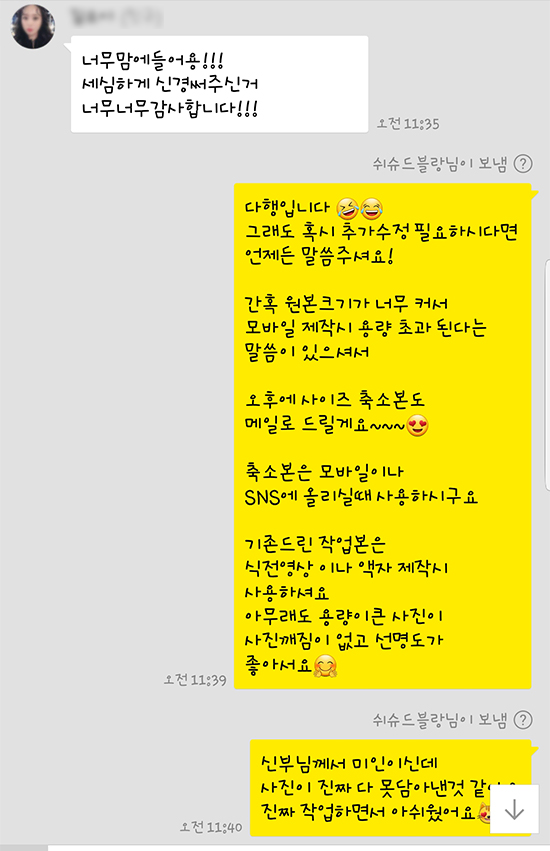 너무맘에들어용!!!
세심하게 신경써주신거
너무너무감사합니다!!!
오전 11:35
쉬슈드블랑님이 보냄 ?
다행입니다 🤣😂
그래도 혹시 추가수정 필요하시다면
언제든 말씀주셔요!
간혹 원본크기가 너무 커서
모바일 제작시 용량 초과 된다는
말씀이 있으셔서
오후에 사이즈 축소본도
메일로 드릴게요~~~😍
축소본은 모바일이나
SNS에 올리실때 사용하시구요
기존드린 작업본은
식전영상 이나 액자 제작시
사용하셔요
아무래도 용량이큰 사진이
사진깨짐이 없고 선명도가
좋아서요🤗
오전 11:39
쉬슈드블랑님이 보냄 ?
신부님께서 미인이신데
사진이 진짜 다 못담아낸것
진짜 작업하면서 아쉬웠어요😻
오전 11:40